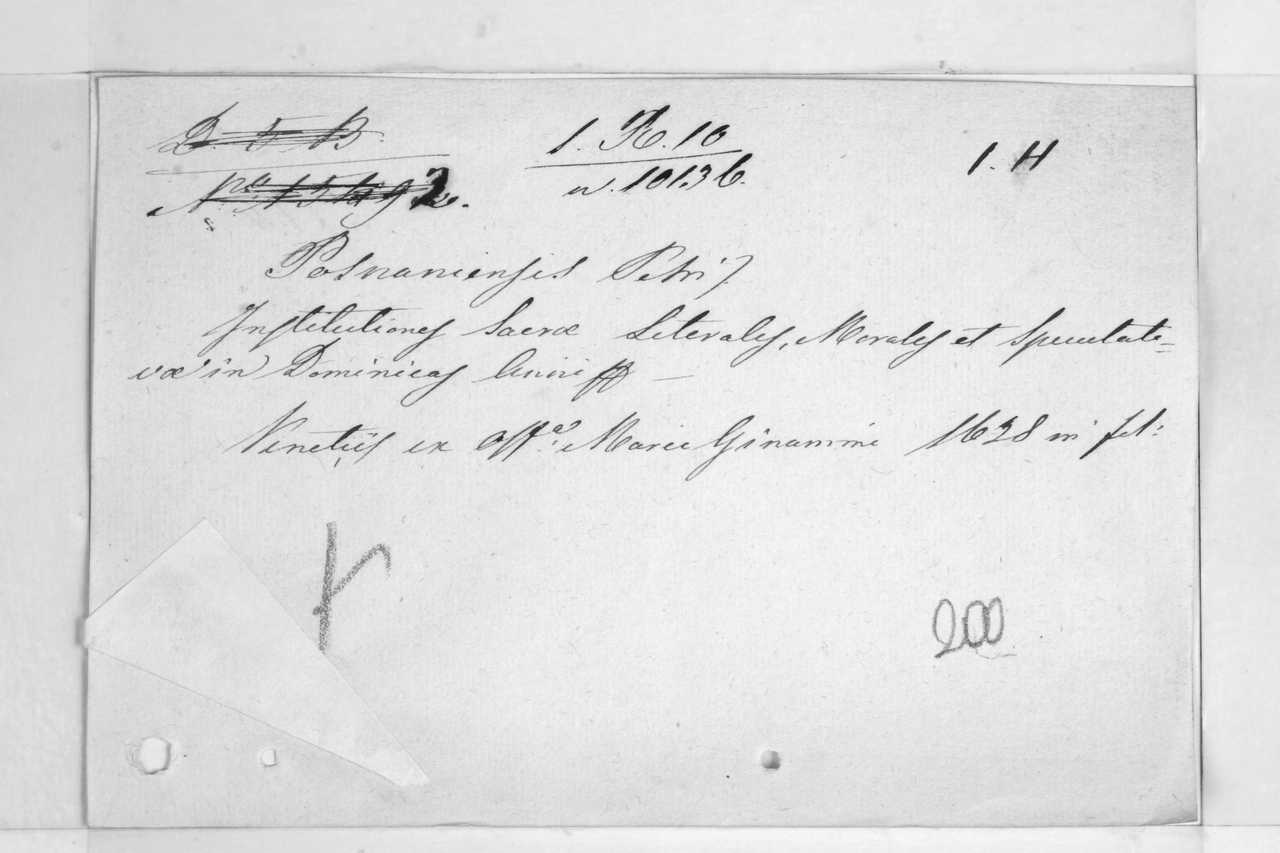 D. 5 B.
1. K. 10
1. H
n. 10136.
Posnaniensis Petri
Institutiones Sacræ Literales, Morales et Speculati=
væ in Dominicas Anni
Venetiis ex Offª: Marci Ginammi 1628 in fol:
200